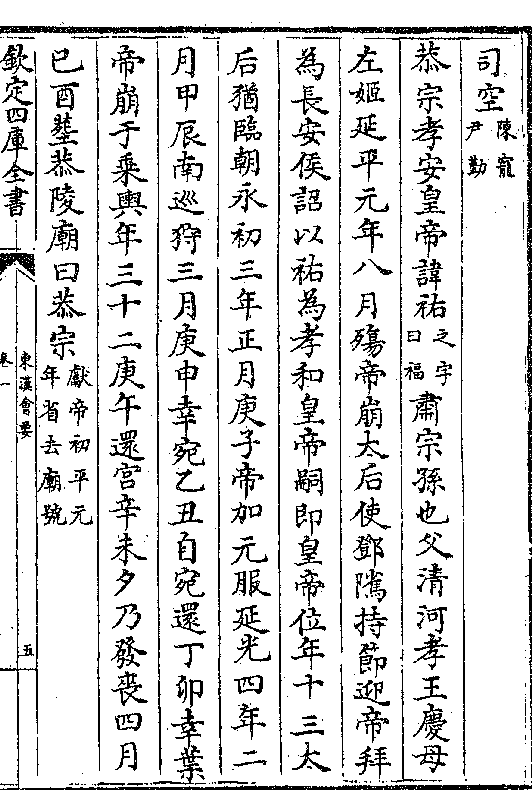 司空陳寵尹勤
恭宗孝安皇帝諱祐之字曰福肅宗孫也父清河孝王慶母
左姬延平元年八月殤帝崩太后使鄧隲持節迎帝拜
為長安侯詔以祐為孝和皇帝嗣即皇帝位年十三太
后猶臨朝永初三年正月庚子帝加元服延光四年二
月甲辰南巡狩三月庚申幸宛乙丑自宛還丁卯幸葉
帝崩于乗輿年三十二庚午還宮辛未夕乃發喪四月
己酉塟恭陵廟曰恭宗獻帝初平元年省去廟號
欽定四庫全書
東漢會要
卷一
五